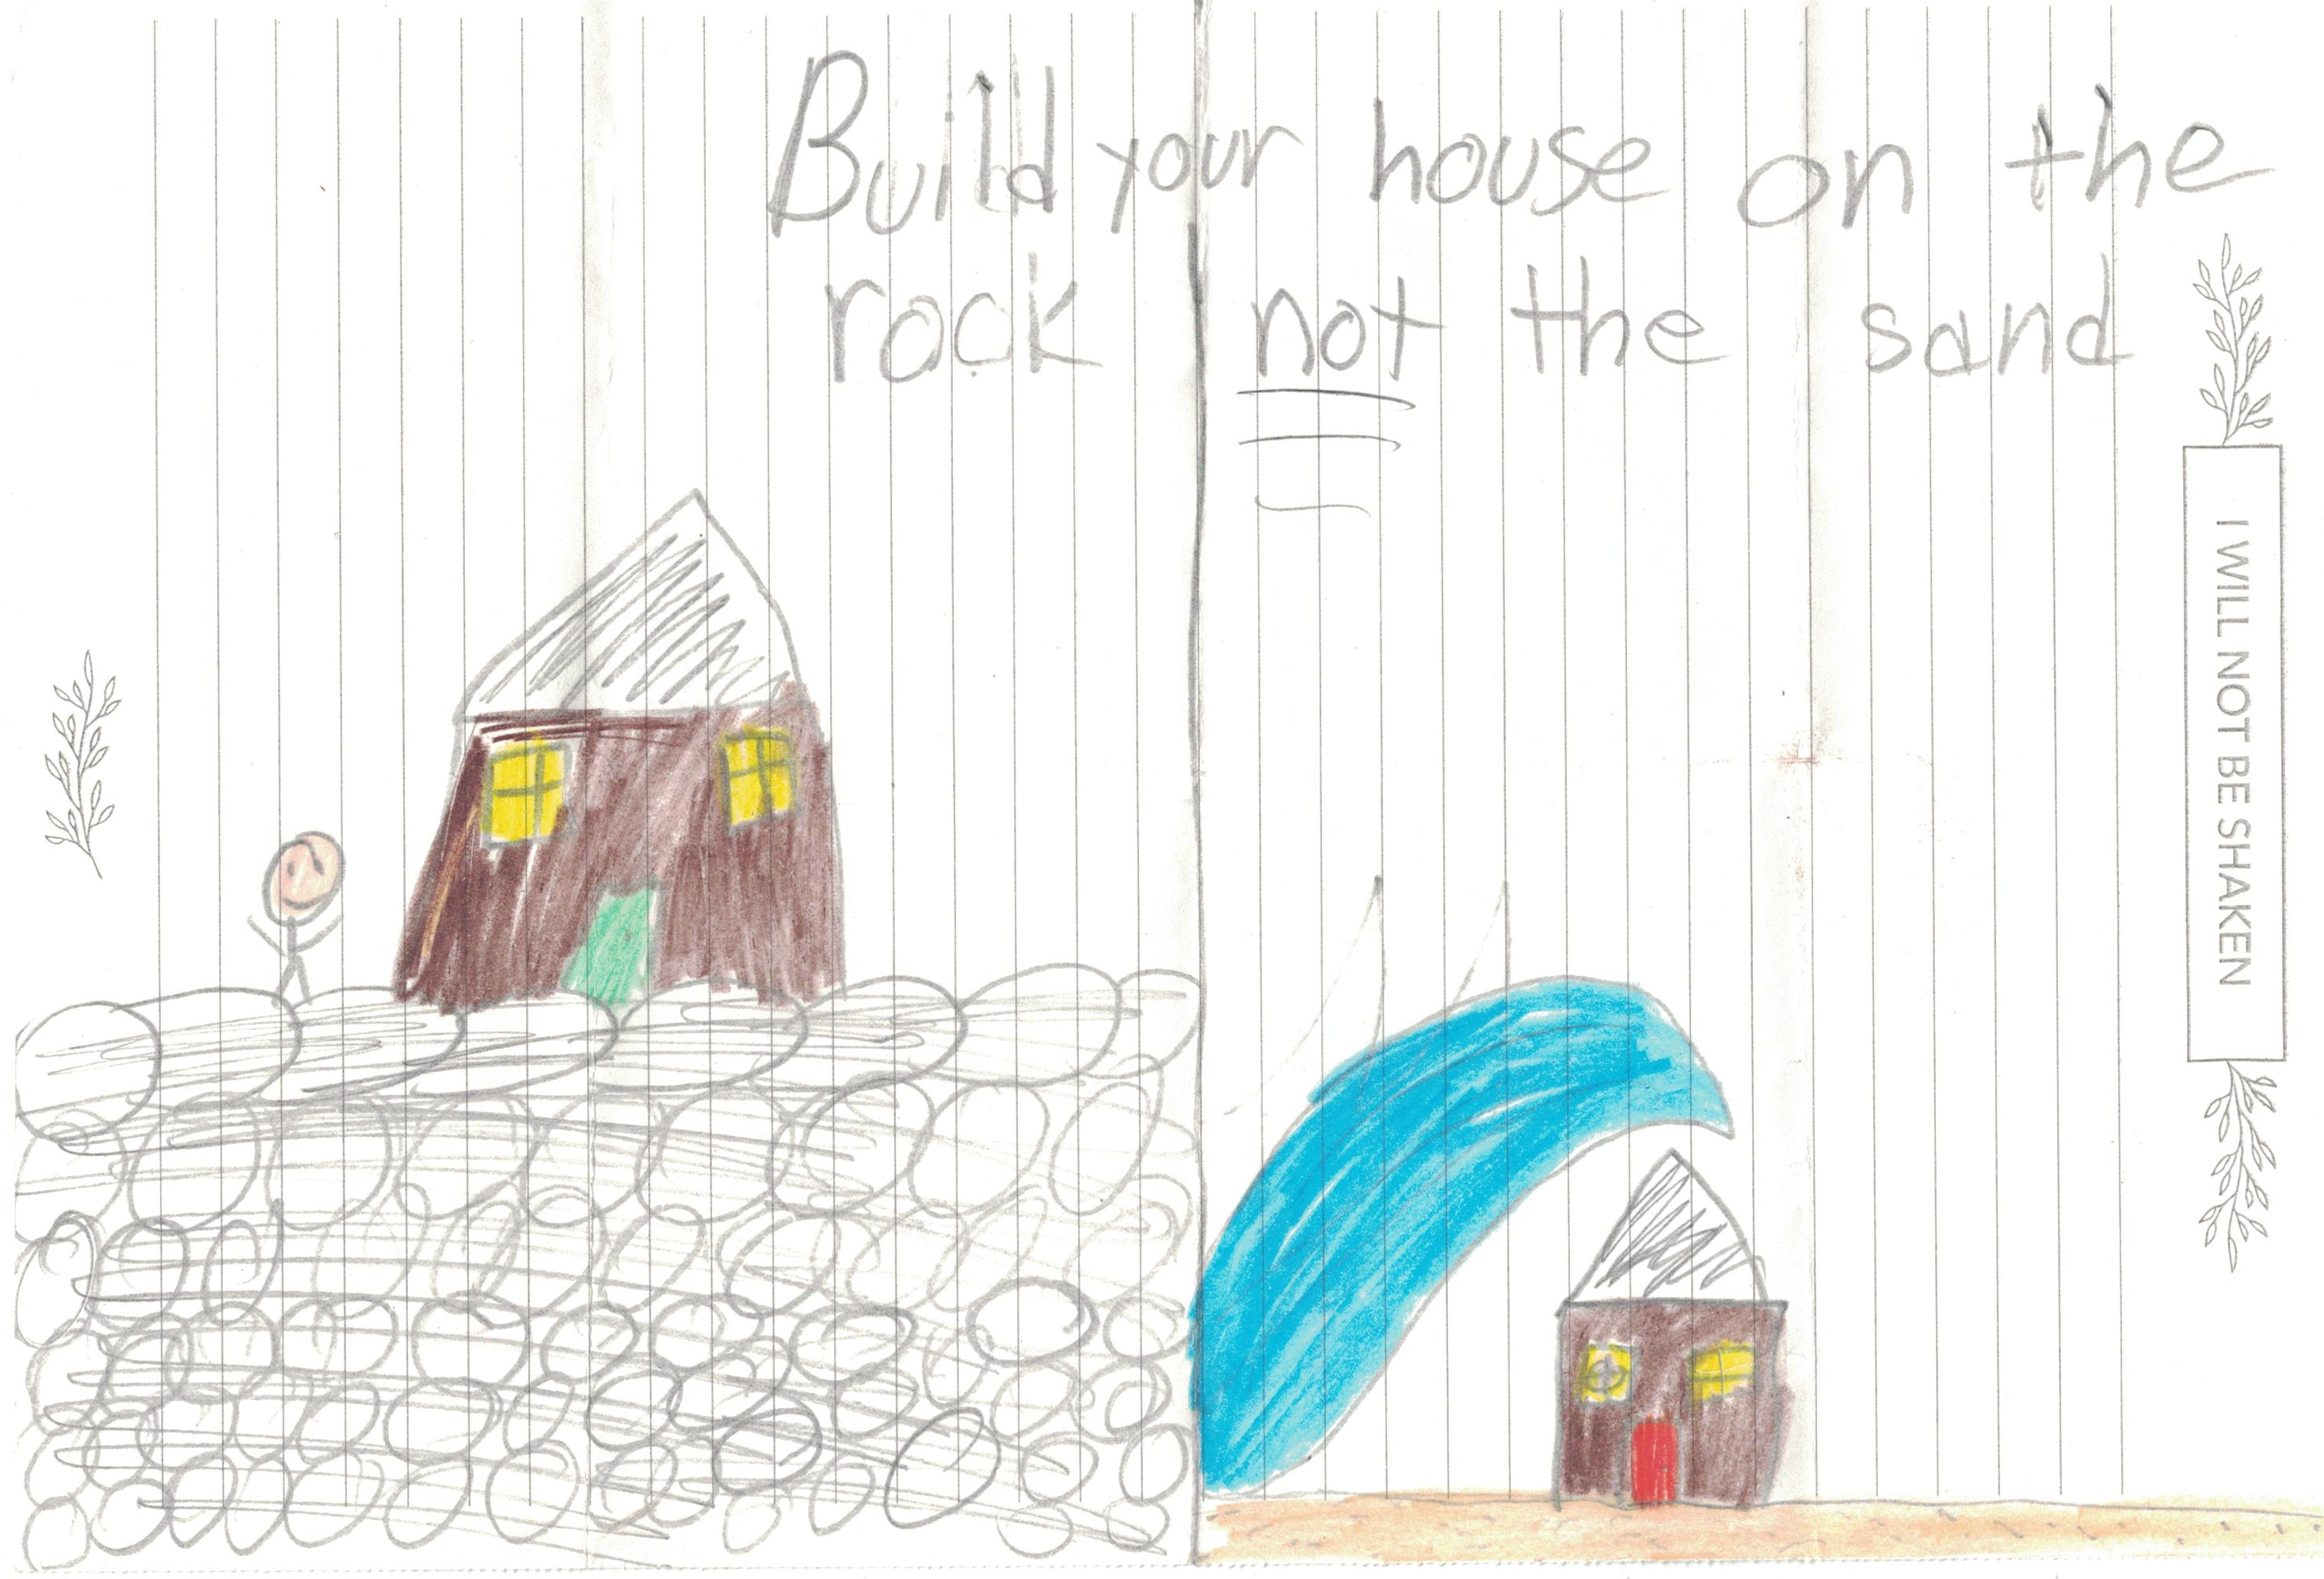 Build your house on the
rock not the sand
I WILL NOT BE SHAKEN